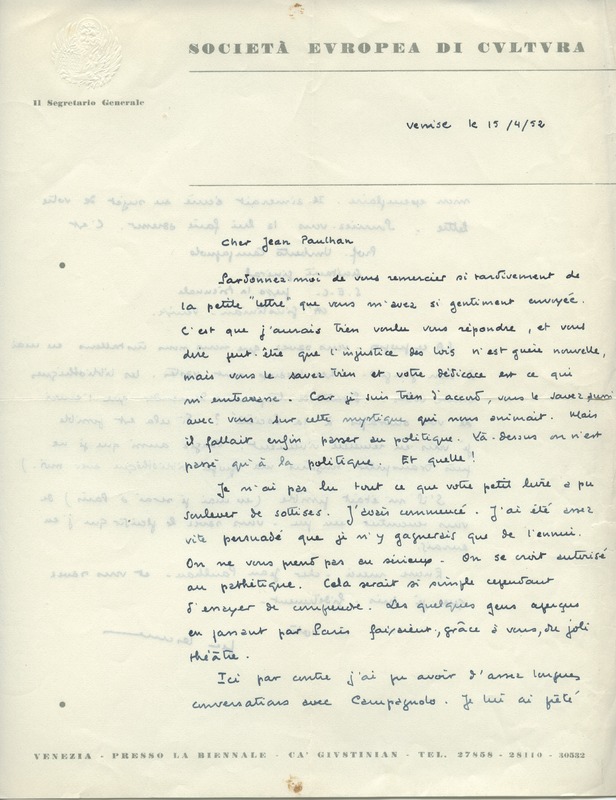 SOCIETÀ EVROPEA DI CVLTVRA
Il Segretario Generale
Venise le 15/4/52
Cher Jean Paulhan
Pardonnez-moi de vous remercier si tardivement de
la petite "lettre" que vous m'avez si gentiment envoyée.
C'est que j'aurais bien voulu vous répondre, et vous
dire peut-être que l'injustice des lois n'est guère nouvelle,
mais vous le savez bien et votre dédicace est ce qui
m'embarasse. Car je suis bien d'accord, vous le savez aussi
avec vous sur cette mystique qui nous animait. Mais
il fallait enfin passer au politique. Là-dessus on n'est
passé qu'à la politique. Et quelle!
Je n'ai pas lu tout ce que votre petit livre a pu
soulever de sottises. J'avais commencé. J'ai été assez
vite persuadé que je n'y gagnerais que de l'ennui.
On ne vous prend pas au sérieux. On se croit autorisé
au pathétique. Cela serait si simple cependant
d'essayer de comprendre. Les quelques gens aperçus
en passant par Paris faisaient, grâce à vous, du joli
théâtre.
Ici par contre j'ai pu avoir d'assez longues
conversations avec Campagnolo. Je lui ai prêté
VENEZIA - PRESSO LA BIENNALE - CA' GIVSTINIAN - TEL. 27858 - 28110 - 30532